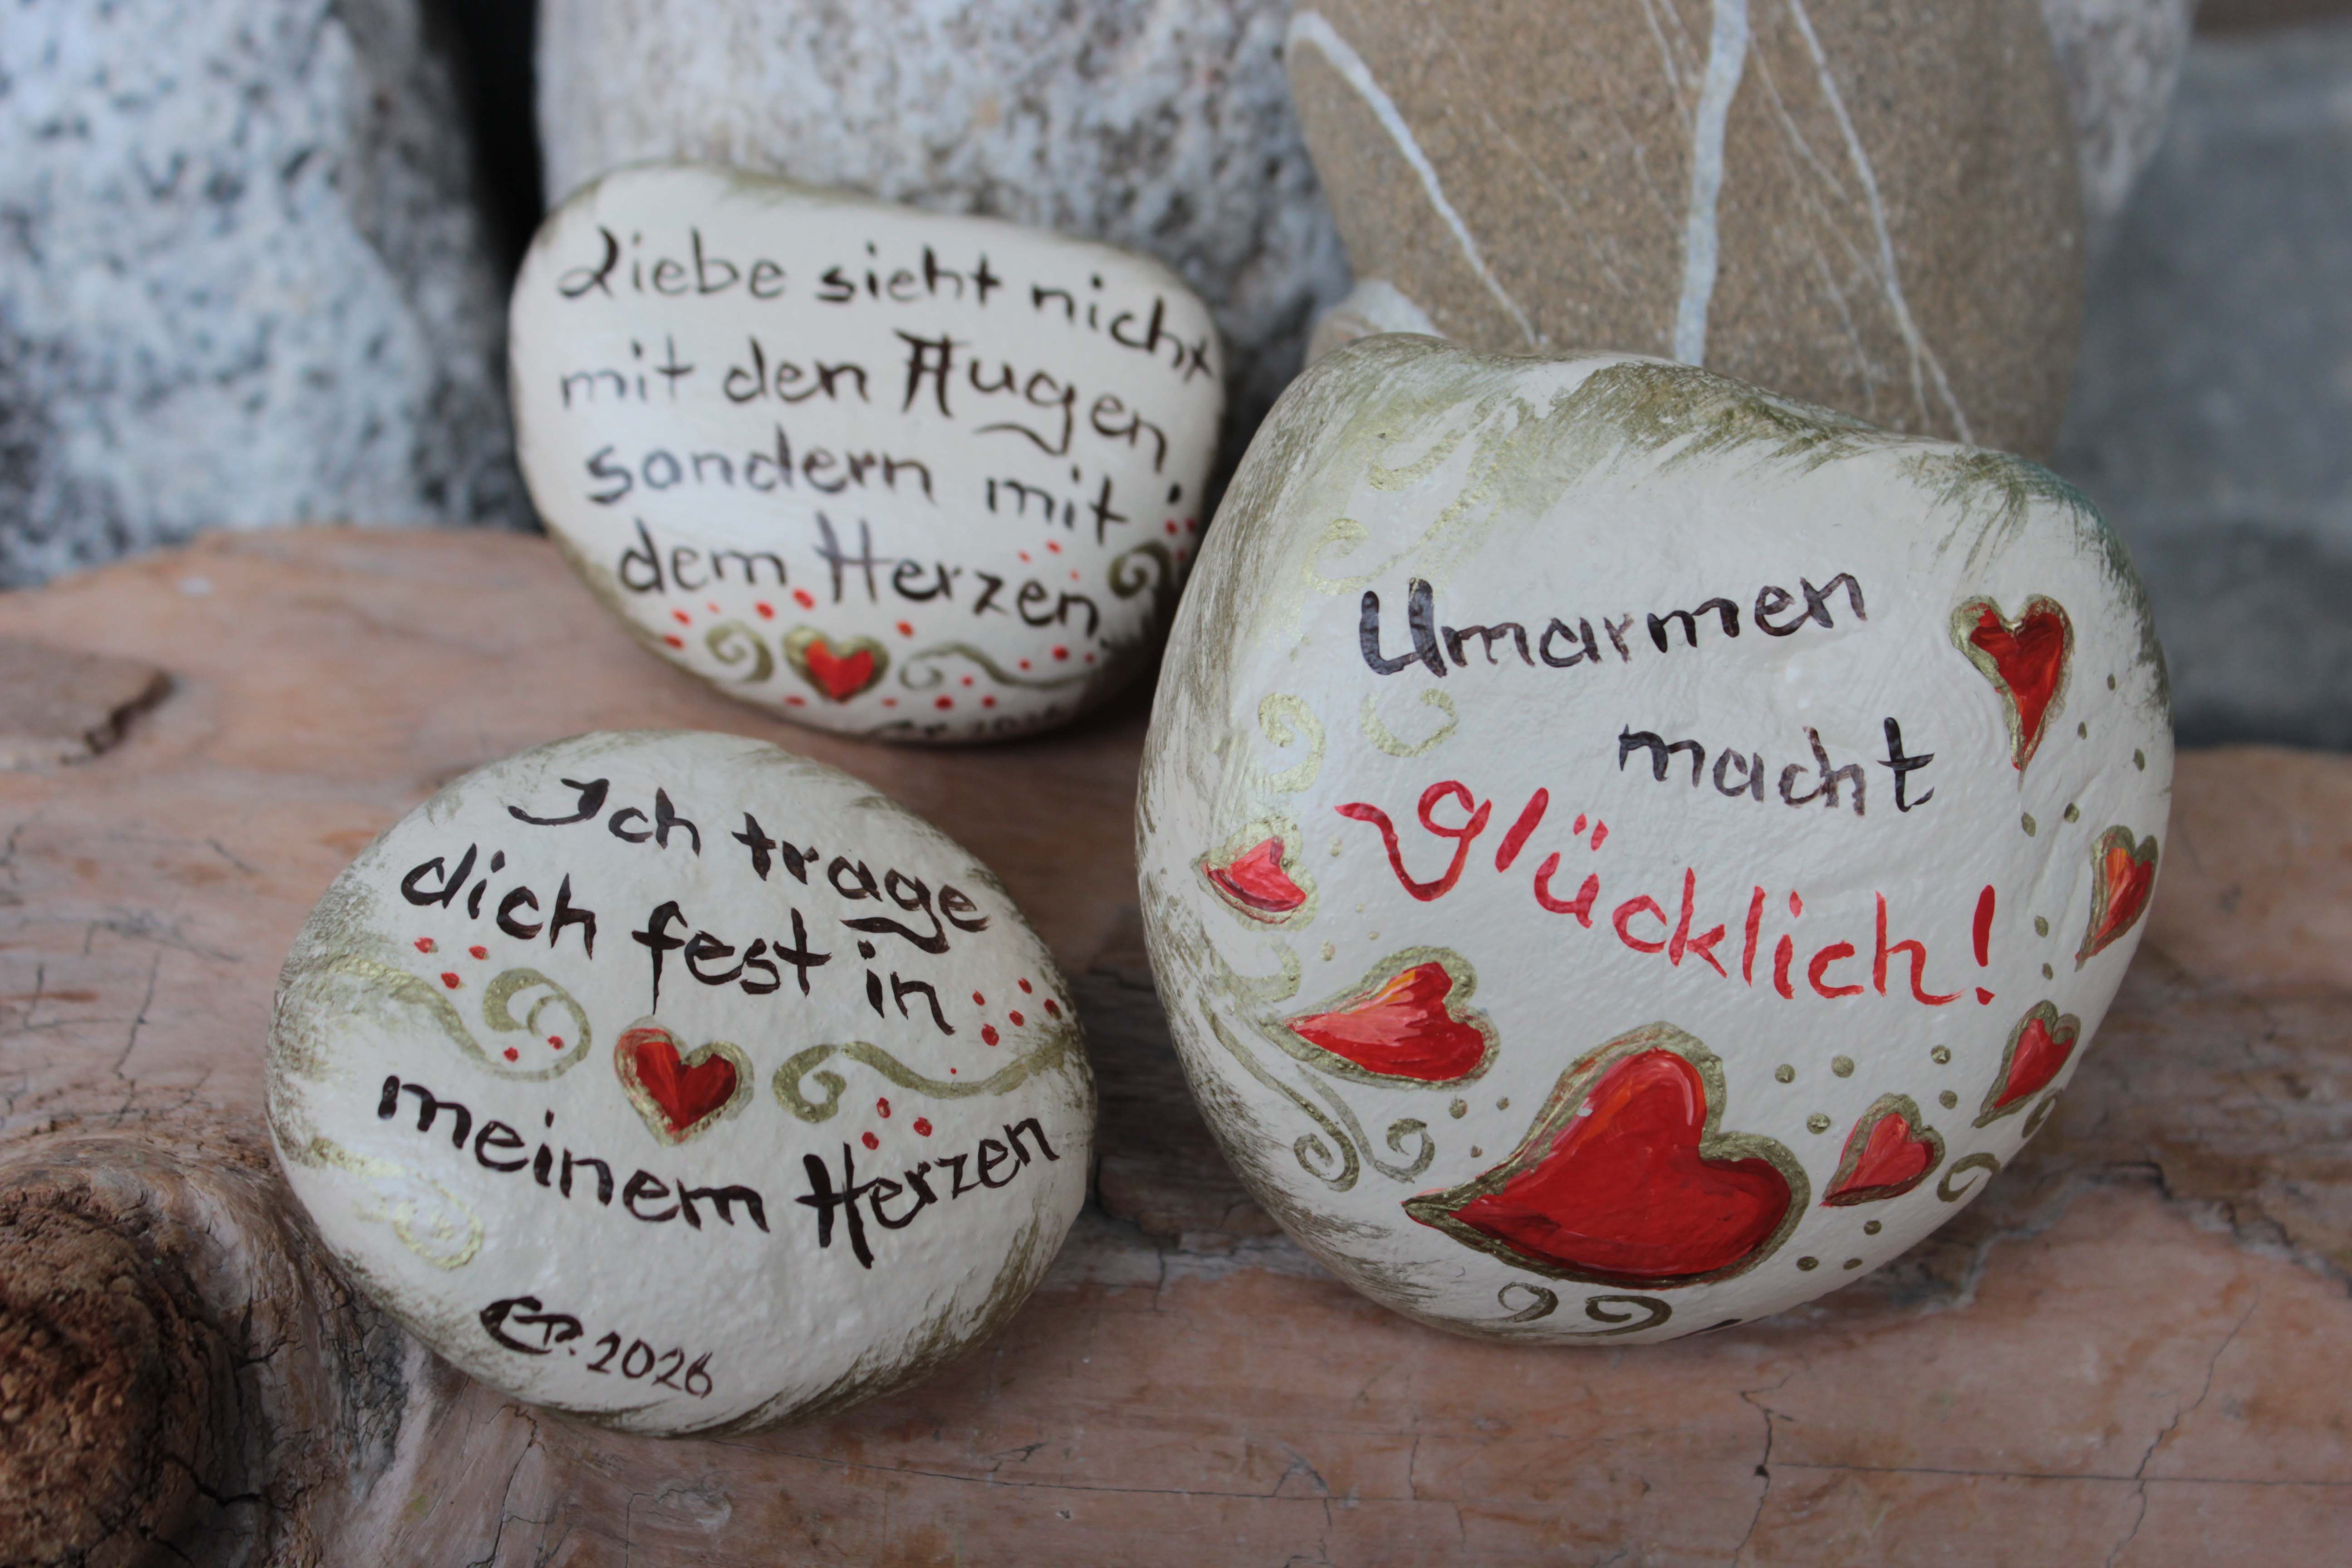 Liebe sieht nicht
mit den Augen,
sondern mit
dem Herzen.
Ich trage
dich fest in
meinem Herzen
EP. 2026
Umarmen
macht
Glücklich!